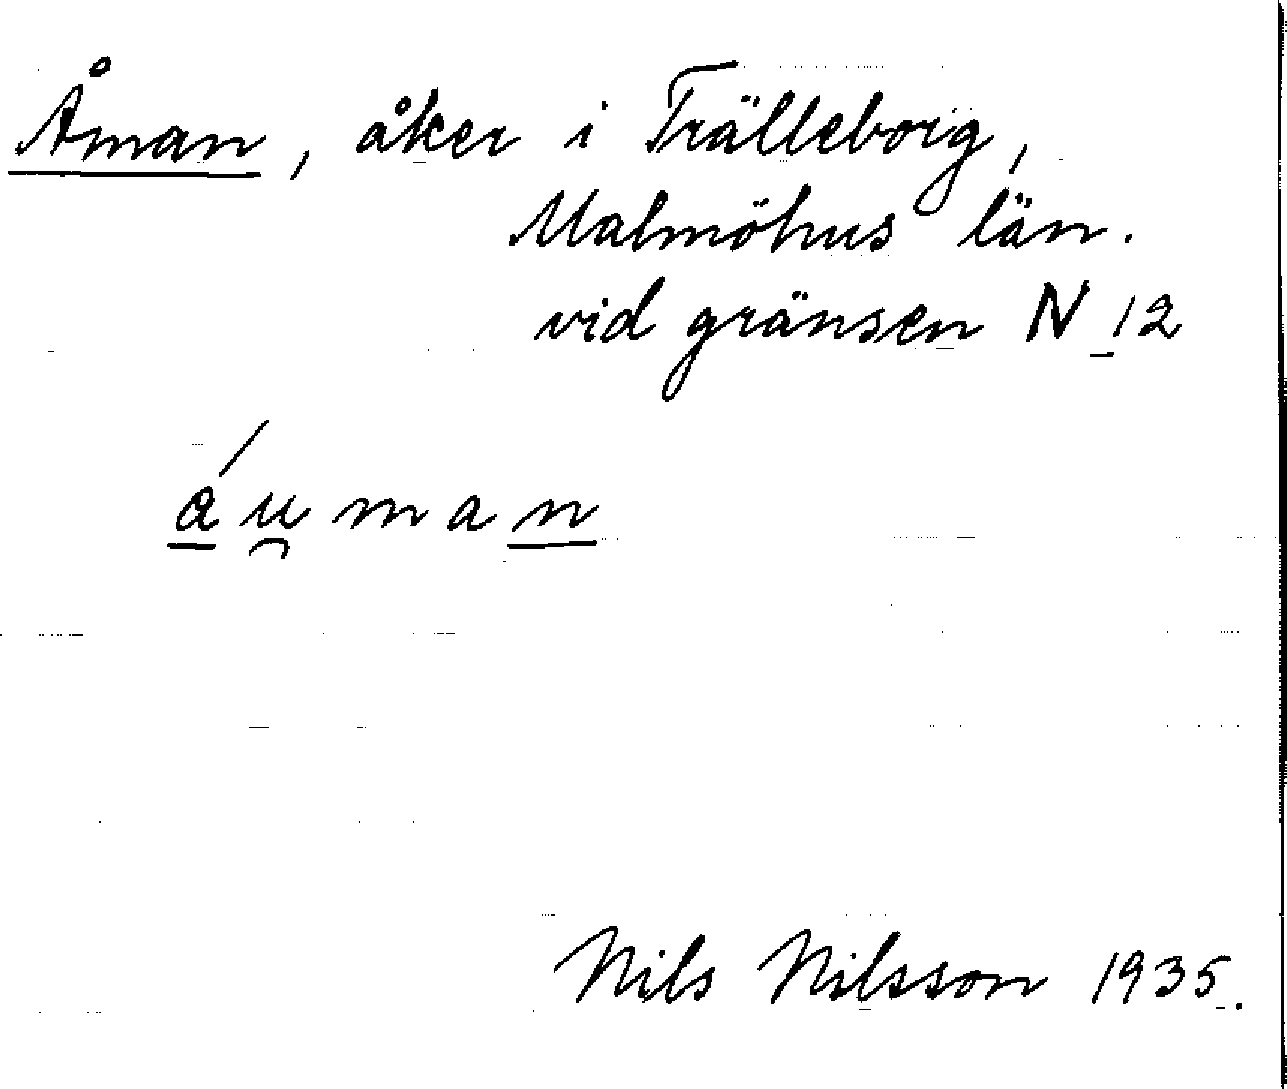 Åman, åker i Trälleborg,
Malmöhus län.
vid gränsen N 12
áu̯man
Nils Nilsson 1935.